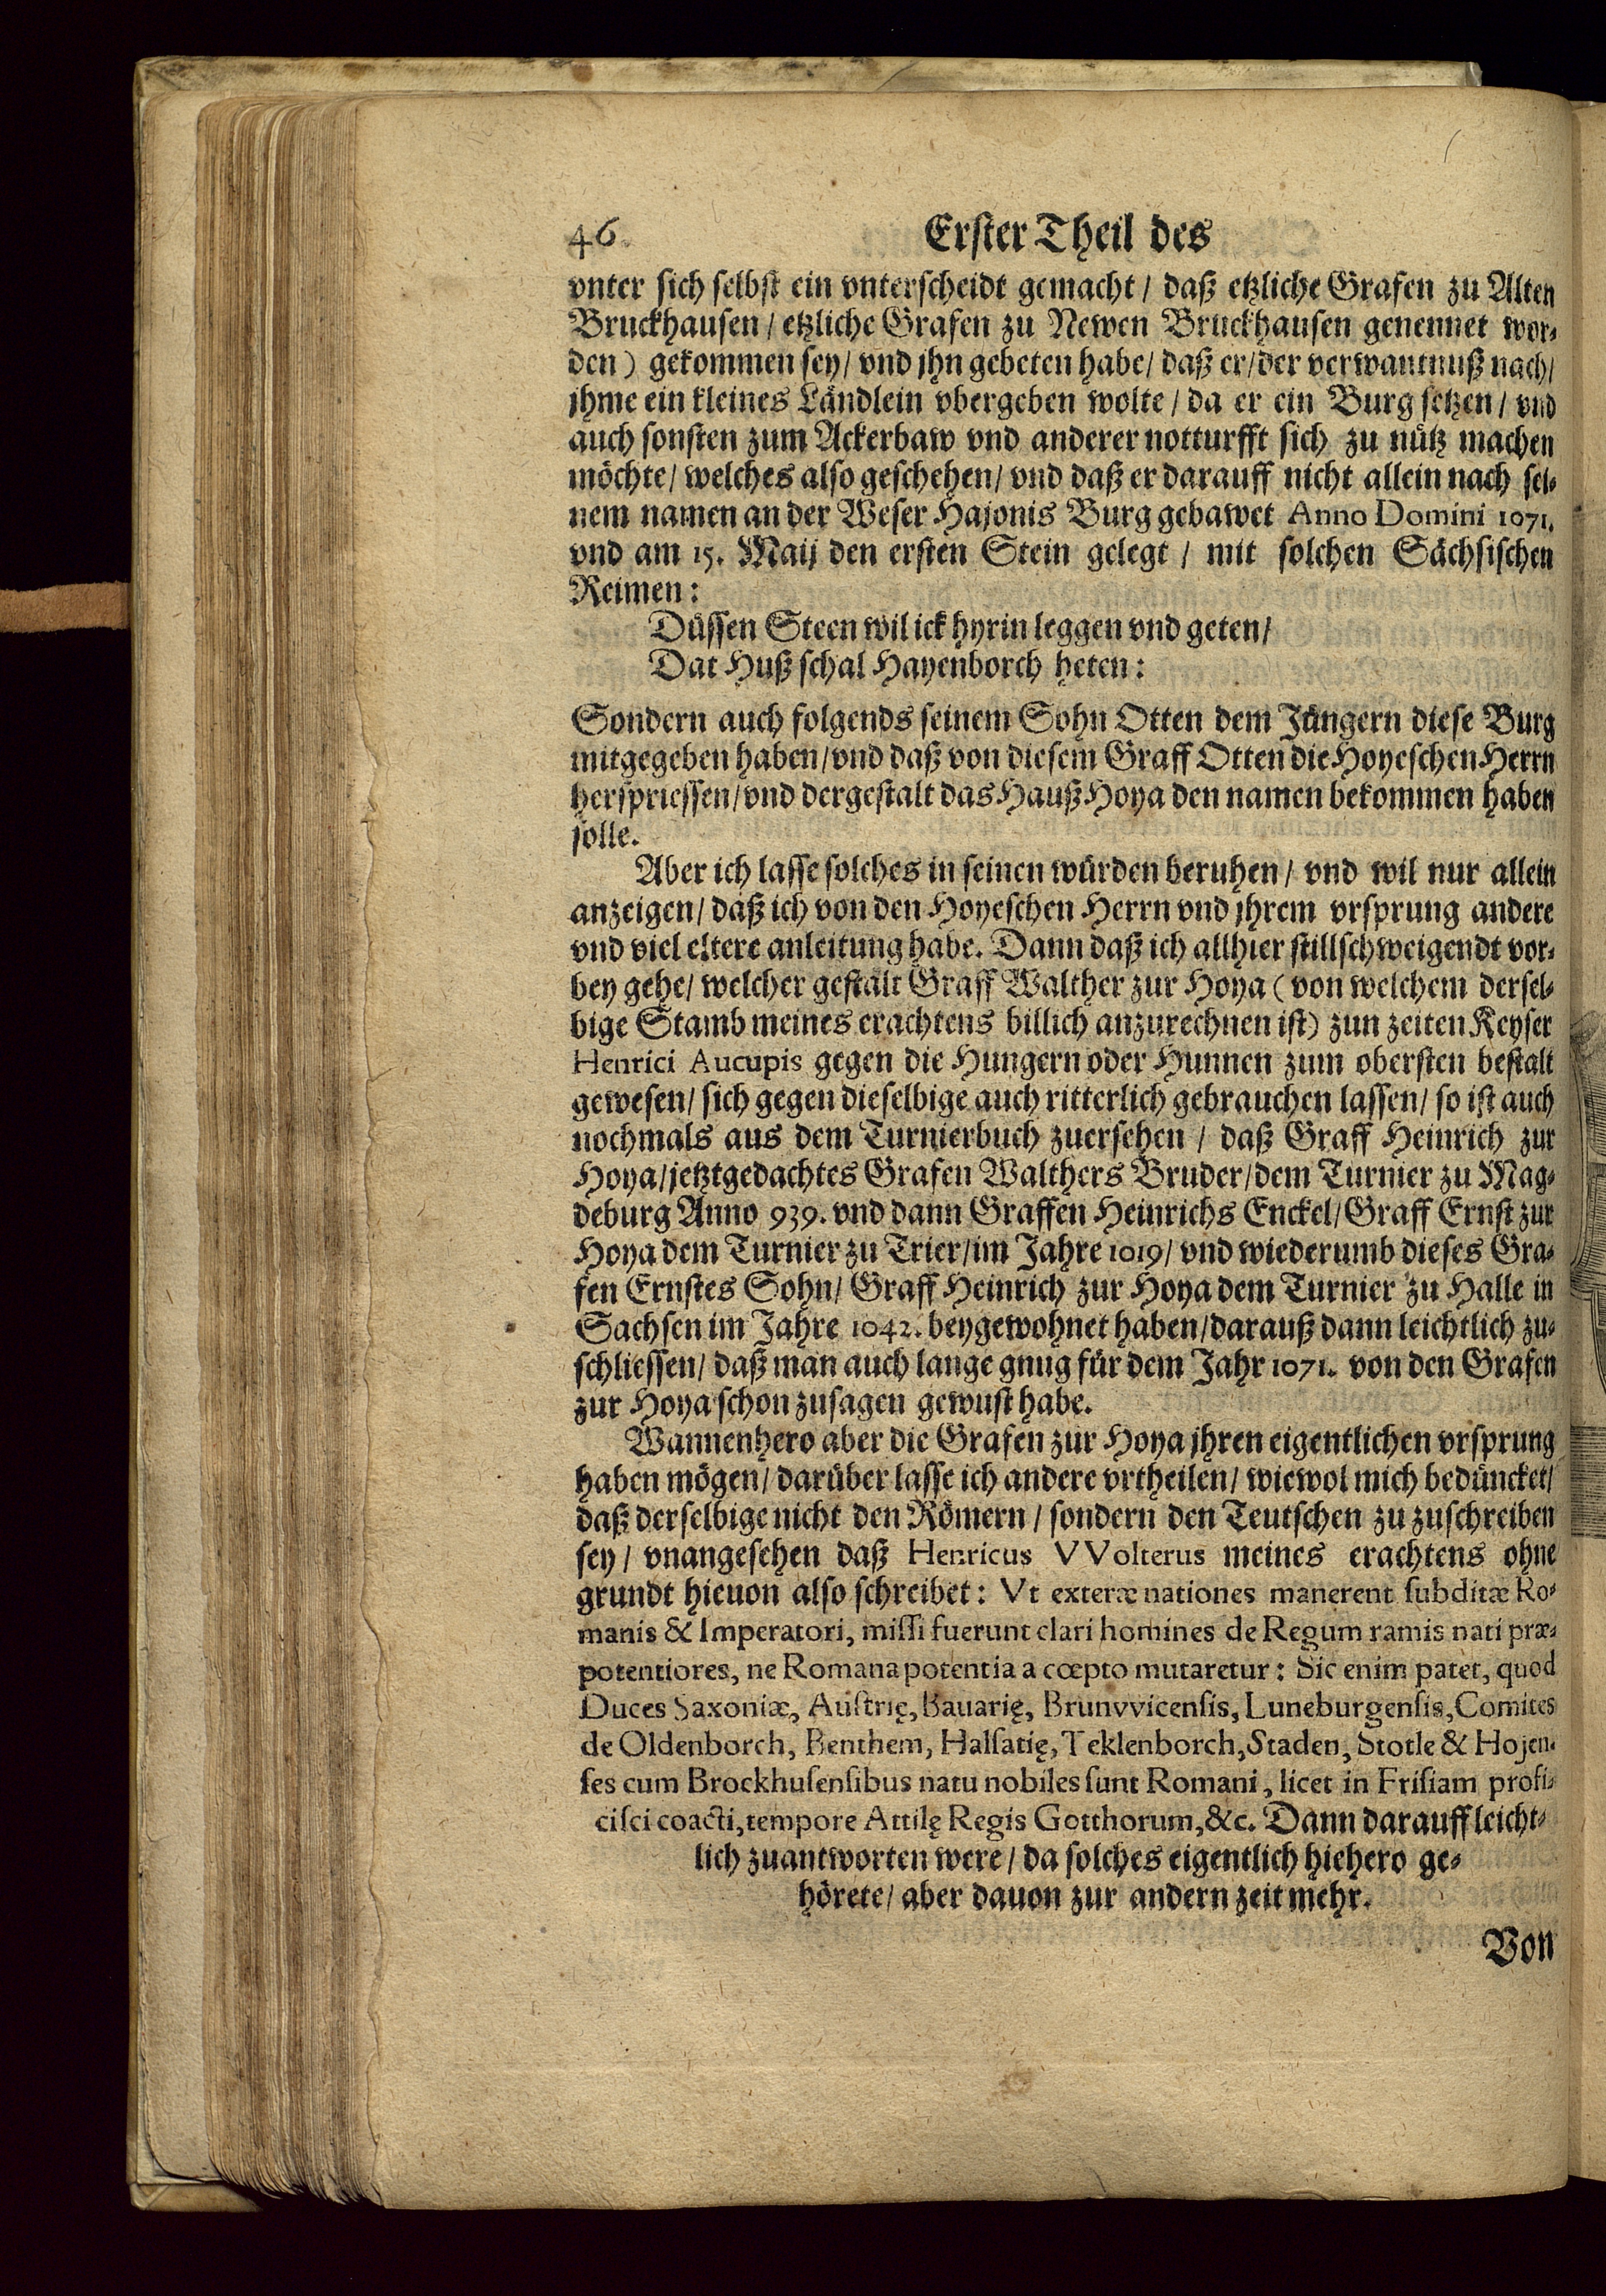 46 Erster Theil des
vnter sich selbst ein vnterscheidt gemacht / daß etzliche Grafen zu Alten
Bruckhausen / etzliche Grafen zu Newen Bruckhausen genennet wor-
den) gekommen sey / vnd jhn gebeten habe / daß er / der verwantnuß nach /
jhme ein kleines Ländlein vbergeben wolte / da er ein Burg setzen / vnd
auch sonsten zum Ackerbaw vnd anderer notturfft sich zu nütz machen
möchte / welches also geschehen / vnd daß er darauff nicht allein nach sei-
nem namen an der Weser Hajonis Burg gebawet Anno Domini 1071.
vnd am 15. Maij den ersten Stein gelegt / mit solchen Sächsischen
Reimen:
Düssen Steen wil ick hyrin leggen vnd geten /
Dat Huß schal Hayenborch heten:
Sondern auch folgends seinem Sohn Otten dem Jüngern diese Burg
mitgegeben haben / vnd daß von diesem Graff Otten die Hoyeschen Herrn
herspriessen / vnd dergestalt das Hauß Hoya den namen bekommen haben
solle.
Aber ich lasse solches in seinen würden beruhen / vnd wil nur allein
anzeigen / daß ich von den Hoyeschen Herrn vnd jhrem vrsprung andere
vnd viel eltere anleitung habe. Dann daß ich allhier stillschweigendt vor-
bey gehe / welcher gestalt Graff Walther zur Hoya (von welchem dersel-
bige Stamb meines erachtens billich anzurechnen ist) zun zeiten Keyser
Henrici Aucupis gegen die Hungern oder Hunnen zum obersten bestalt
gewesen / sich gegen dieselbige auch ritterlich gebrauchen lassen / so ist auch
nochmals aus dem Turnierbuch zuersehen / daß Graff Heinrich zur
Hoya / jetztgedachtes Grafen Walthers Bruder / dem Turnier zu Mag-
deburg Anno 939. vnd dann Graffen Heinrichs Enckel / Graff Ernst zur
Hoya dem Turnier zu Trier / im Jahre 1019 / vnd wiederumb dieses Gra-
fen Ernstes Sohn / Graff Heinrich zur Hoya dem Turnier zu Halle in
Sachsen im Jahre 1042. beygewohnet haben / darauß dann leichtlich zu-
schliessen / daß man auch lange gnug für dem Jahr 1071. von den Grafen
zur Hoya schon zusagen gewust habe.
Wannenhero aber die Grafen zur Hoya jhren eigentlichen vrsprung
haben mögen / darüber lasse ich andere vrtheilen / wiewol mich bedüncket /
daß derselbige nicht den Römern / sondern den Teutschen zu zuschreiben
sey / vnangesehen daß Henricus VVolterus meines erachtens ohne
grundt hieuon also schreibet: Vt exteræ nationes manerent subditæ Ro-
manis & Imperatori, missi fuerunt clari homines de Regum ramis nati præ-
potentiores, ne Romana potentia a cœpto mutaretur: Sic enim patet, quod
Duces Saxoniæ, Austrię, Bauarię, Brunvvicensis, Luneburgensis, Comites
de Oldenborch, Benthem, Halsatię, Teklenborch, Staden, Stotle & Hojen-
ses cum Brockhusensibus natu nobiles sunt Romani, licet in Frisiam profi-
cisci coacti, tempore Attilę Regis Gotthorum, &c. Dann darauff leicht-
lich zuantworten were / da solches eigentlich hiehero ge-
hörete / aber dauon zur andern zeit mehr.
Von